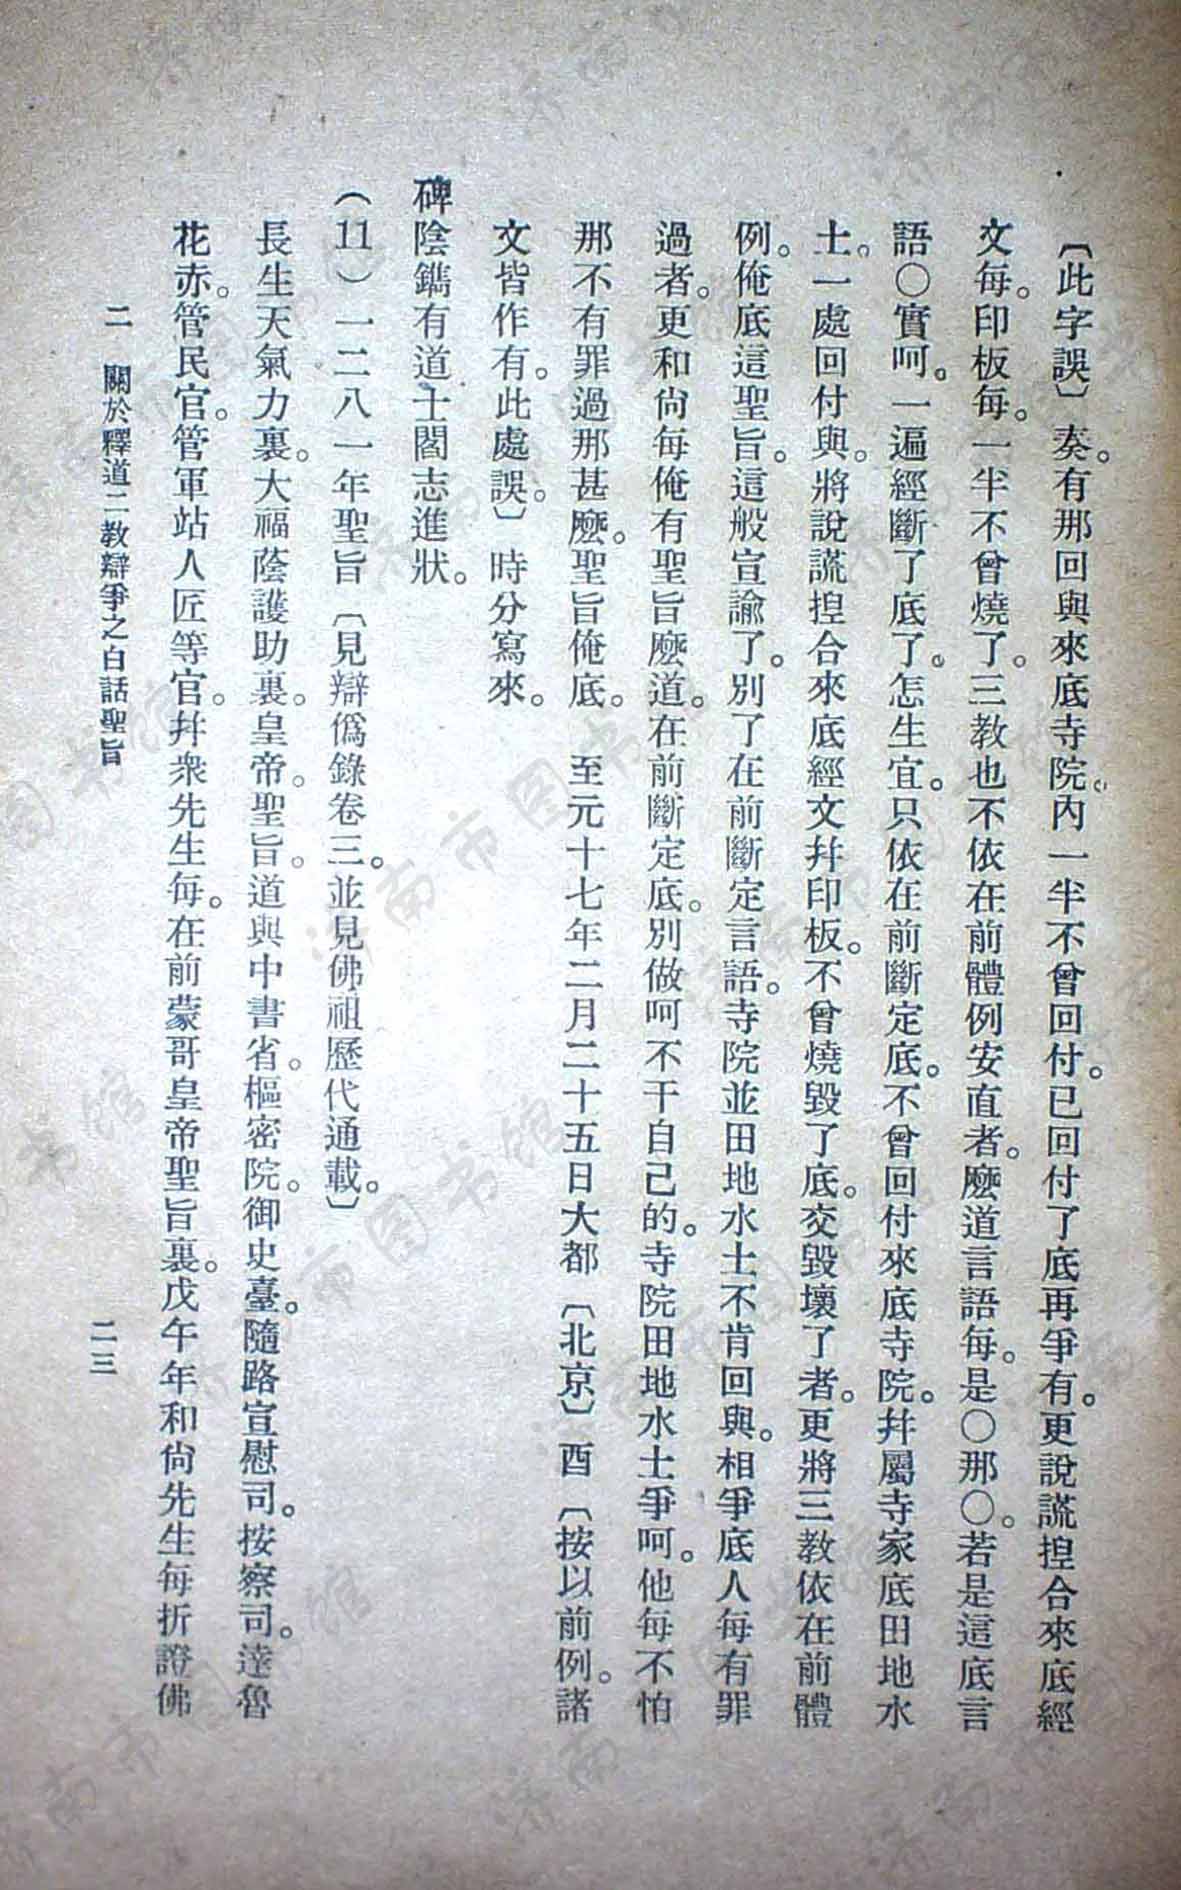 〔此字誤〕奏。有那回與來底寺院。內一半不曾回付。已回付了底再爭有。更說謊揑合來底經
文每。印板每。一半不曾燒了。三教也不依在前體例安直者。麼道言語每。是〇那〇。若是這底言
語〇實呵。一遍經斷了底了。怎生宜。只依在前斷定底。不曾回付來底寺院。幷屬寺家底田地水
土。一處回付與。將說謊揑合來底經文幷印板。不曾燒毀了底。交毀壞了者。更將三教依在前體
例。俺底這聖旨。這般宣諭了。別了在前斷定言語。寺院並田地水土不肯回與。相爭底人每有罪
過者。更和尙每俺有聖旨麼道。在前斷定底。別做呵不干自己的。寺院田地水土爭呵。他每不怕
那不有罪過那甚麼。聖旨俺底。　至元十七年二月二十五日大都〔北京〕酉〔按以前例。諸
文皆作有。此處誤。〕時分寫來。
碑陰鐫有道士閻志進狀。
（11）一二八一年聖旨〔見辯僞錄卷三。並見佛祖歷代通載。〕
長生天氣力裏。大福蔭護助裏。皇帝。聖旨。道與中書省。樞密院。御史臺。隨路宣慰司。按察司。達魯
花赤。管民官。管軍站人匠等官。幷衆先生每。在前蒙哥皇帝聖旨裏。戊午年和尙先生每折證佛
二　關於釋道二教辯爭之白話聖旨　二三
濟南市图书馆